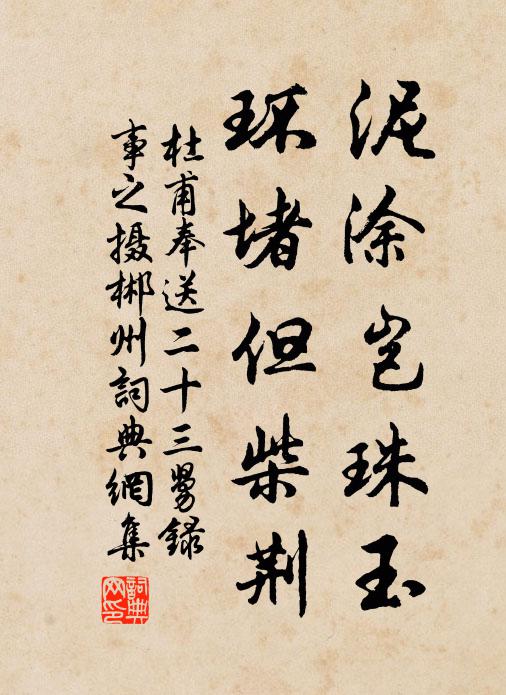 泥涂岂珠玉
环堵但柴荆
杜甫奉送二十三舅录
事之摄郴州詞典網集
詞典網印